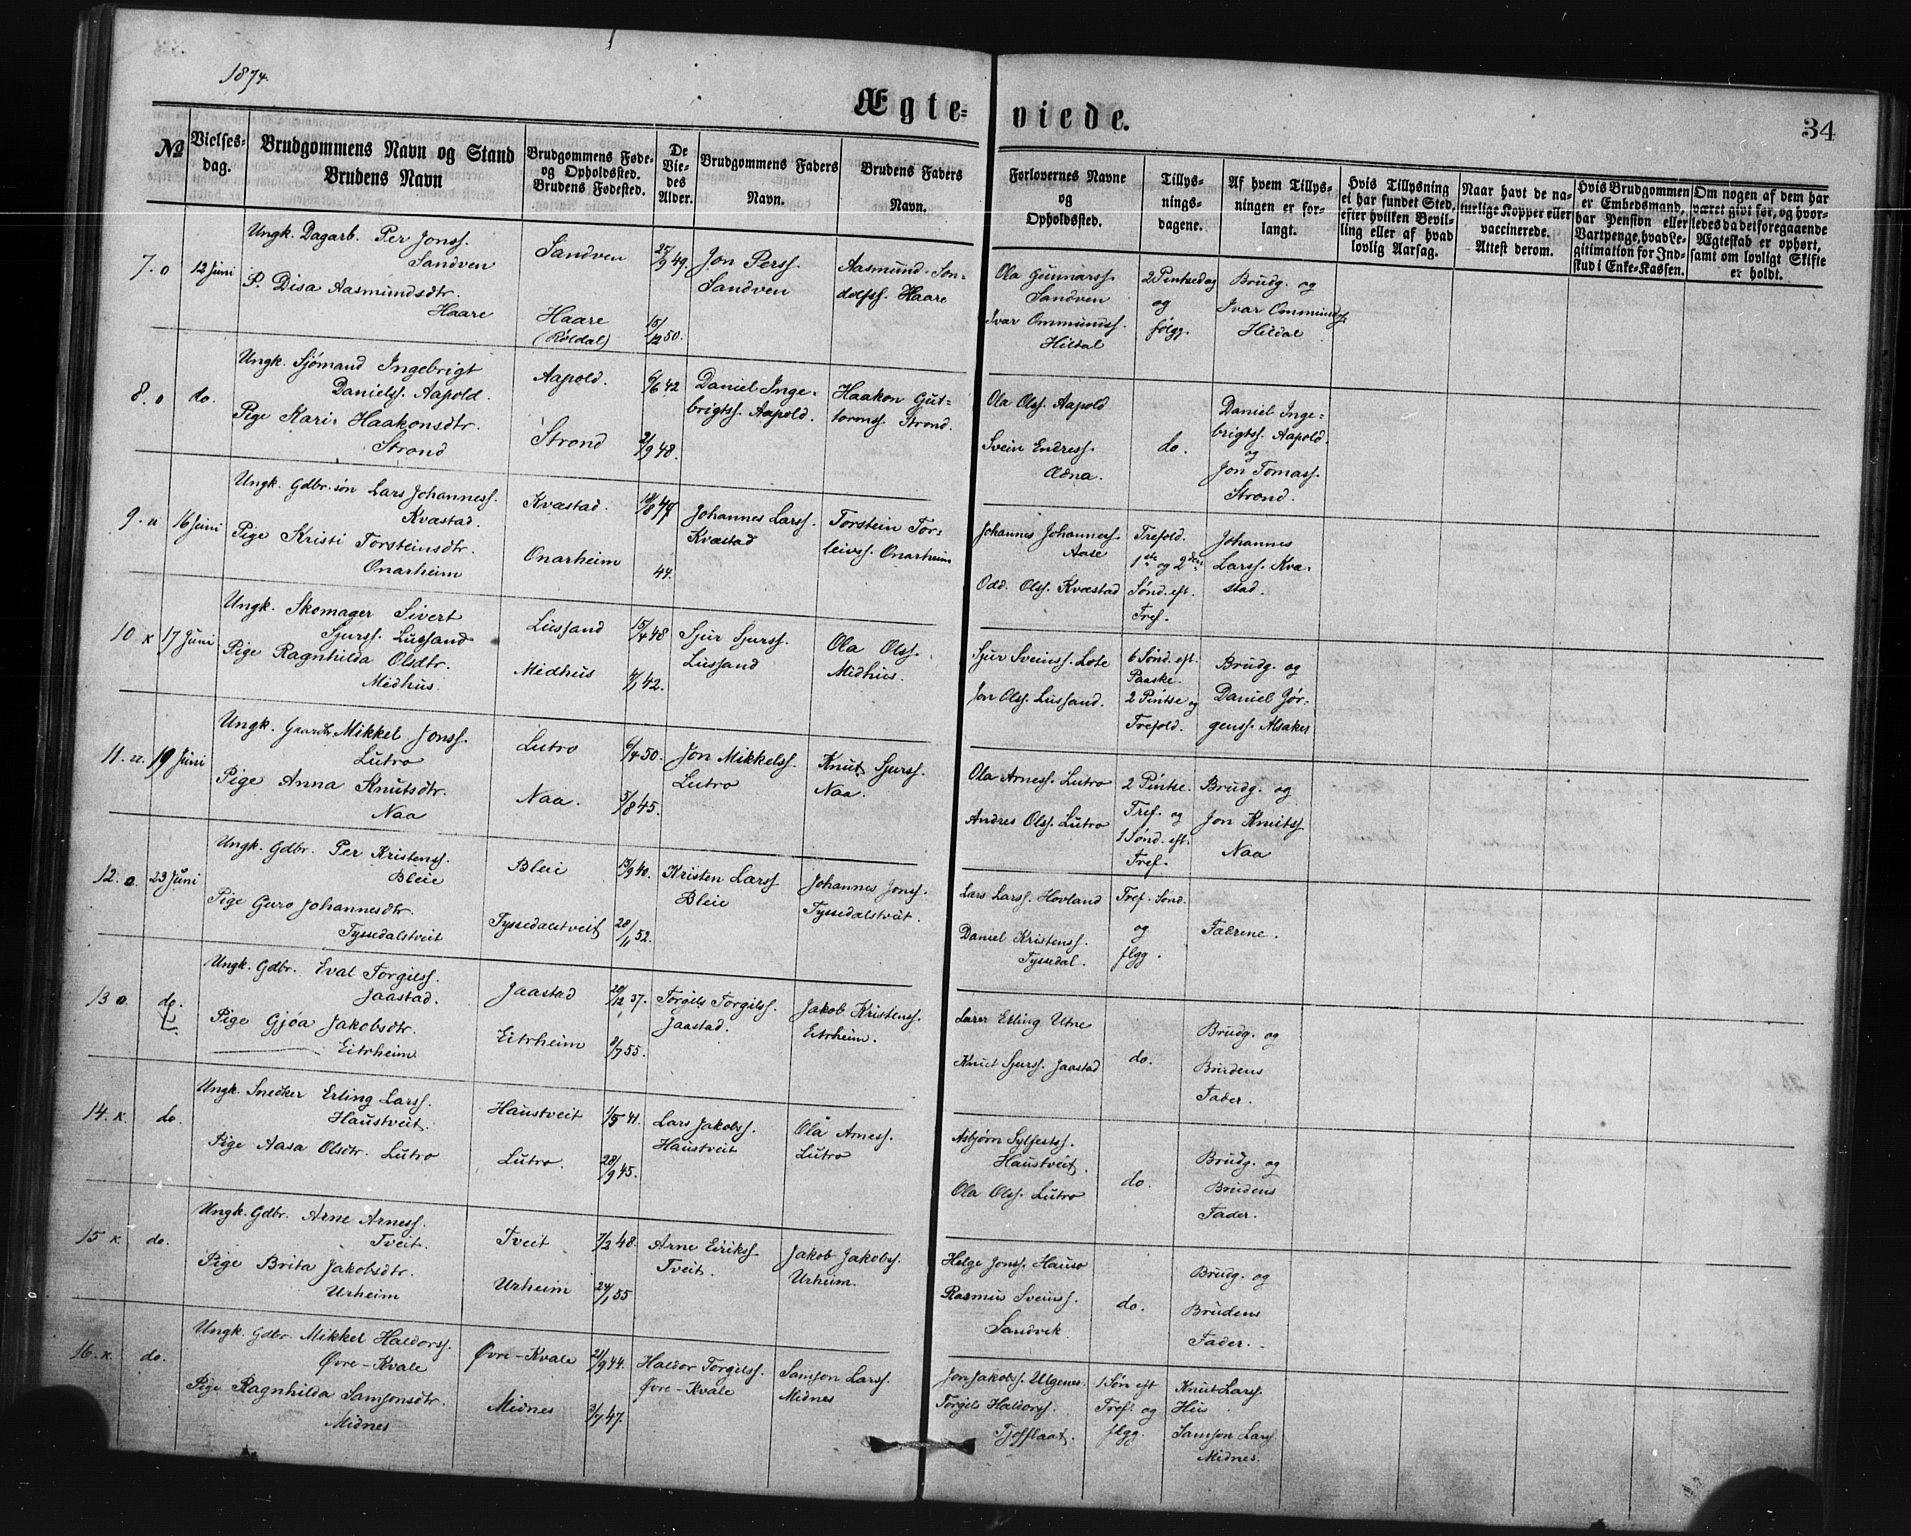 1874.
Ægteviede.
34
No
Vielsesdag.
Brudgommens Navn og Stand
Brudens Navn
Brudgommens Føde-
og Opholdssted.
Brudens Fødested.
De
Vie-
des
Alder.
Brudgommens Faders
Navn.
Brudens Faders
Navn.
Forlovernes Navne
og
Opholdssted.
Tillys-
nings-
dagene.
Af hvem Tillys-
ningen er for-
langt.
Hvis Tillysning
ei har fundet Sted,
efter hvilken Bevil-
ling eller af hvad
lovlig Aarsag.
Naar havt de na-
turlige Kopper eller
vaccinerede.
Attest derom.
Hvis Brudgommen
er Embedsmand,
har Pension eller
Vartpenge, hvad Le-
gitimation for Ind-
skud i Enke-Kassen.
Om nogen af dem har
været givt før, og hvor-
ledes da det foregaaende
Ægteskab er ophørt,
samt om lovligt Skifte
er holdt.
7. o
12 Juni
Ungk. Dagarb. Per Jonss.
Sandven
P. Disa Aasmundsdtr.
Haare
Sandven
Haare
(Røldal)
25/9 49.
15/12 50.
Jon Perss.
Sandven
Aasmund Son-
dolfss. Haare
Ola Gunnarss.
Sandven
Ivar Ommundss.
Hildal
2 Pintsedag
og
følgg.
Brudg. og
Ivar Ommundss
Hildal
8. o
do.
Ungk. Sjømand Ingebrigt
Danielss. Aapold.
Pige Kari Haakonsdtr.
Strond
Aapold.
Strond
6/6 42
2/9 48.
Daniel Inge-
brigtss. Aapold.
Haakon Gut-
tormss. Strond.
Ola Olss. Aapold
Svein Endress.
Ædna.
do.
Daniel Inge-
brigtss. Aapold
og
Jon Tomass.
Strond.
9. u
16 Juni
Ungk. Gdbr. søn Lars Johanness.
Kvæstad.
Pige Kristi Torsteinsdtr.
Onarheim
Kvæstad.
Onarheim
44.
Johannes Larss.
Kvæstad
Torstein Tor-
leivss. Onarheim
Johannes Johanness.
Aase
Odd. Olss. Kvæstad
Trefold.
1ste og 2den
Sønd. eft.
Tref.
Johannes
Larss. Kvæ-
stad.
10 K
17 Juni
Ungk. Skomager Sivert
Sjurss. Lussand
Pige Ragnhilda Olsdtr.
Midhus.
Lussand
Midhus
15/4 48
4/1 42.
Sjur Sjurss.
Lussand
Ola Olss.
Midhus.
Sjur Sveinss. Lote
Jon Olss. Lussand.
6 Sønd. eft.
Paaske.
2 Pintse og
Trefold.
Brudg. og
Daniel Jør-
genss. Alsaker
11. u.
19 Juni
Ungk. Gaardbr Mikkel Jonss.
Lutro
Pige Anna Knutsdtr.
Naa
Lutro
Naa.
6/4 50.
5/8 45.
Jon Mikkelss.
Lutro
Knut Sjurss.
Naa.
Ola Arness. Lutro
Andres Olss. Lutro
2 Pintse.
Tref. og
1 Sønd. eft.
Tref.
Brudg. og
Jon Knutss
Naa
12. o.
23 Juni
Ungk. Gdbr. Per Kristenss.
Bleie
Pige Guro Johannesdtr.
Tyssedalstveit
Bleie
Tyssedalstveit
13/9 40.
28/11 52.
Kristen Larss
Bleie
Johannes Jonss.
Tyssedalstveit.
Lars Larss. Hovland
Daniel Kristenss.
Tyssedal.
Tref. Sønd.
og
flgg.
Fædrene.
13 o.
do.
Ungk. Gdbr. Eval Torgilss.
Jaastad.
Pige Gjøa Jakobsdtr.
Eitrheim
Jaastad
Eitrheim
20/12 37.
8/7 55.
Torgils Torgilss.
Jaastad.
Jakob Kristenss.
Eitrheim.
Lærer Erling Utne
Knut Sjurss. Jaastad
do.
Brudg. og
Brudens
Fader.
14. K.
do.
Ungk. Snedker Erling Larss.
Haustveit.
Pige Aasa Olsdtr. Lutro
Haustveit
Lutro.
1/5 41.
28/9 45.
Lars Jakobss.
Haustveit
Ola Arness.
Lutro
Asbjørn Sylfestss.
Haustveit.
Ola Olss. Lutro
do.
Brudg. og
Brudens
Fader.
15 K.
do.
Ungk. Gdbr. Arne Arness.
Tveit.
Pige Brita Jakobsdtr.
Urheim
Tveit
Urheim
7/2 48.
24/1 55
Arne Eirikss
Tveit.
Jakob Jakobss.
Urheim.
Helge Jonss. Hauso
Rasmus Sveinss.
Sandvek
do.
Brudg. og
Brudens
Fader.
16. K.
do.
Ungk. Gdbr. Mikkel Haldorss.
Øvre-Kvale
Pige Ragnhilda Samsonsdtr.
Midnes
Øvre-Kvale
Midnes
21/9 44.
3/7 47.
Haldor Torgilss.
Øvre-Kvale
Samson Larss.
Midnes
Jon Jakobss. Ulgenes.
Torgils Haldorss.
Tjofflaat.
1 Søn eft
Tref. og
flgg.
Knut Larss.
Hus
Samson Larss
Midnes.